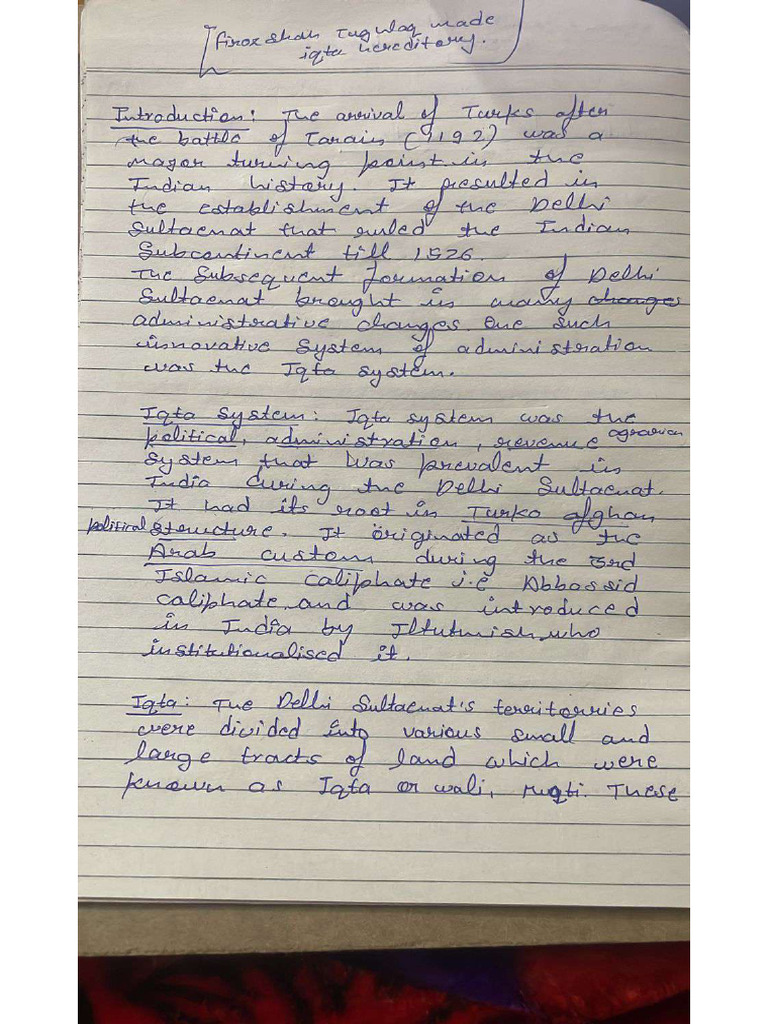 Firoz Shah Tugulaq made
iqta hereditory.
Introduction: The arrival of Turks after
the battle of Tarain (1192) was a
major turning point in the
Indian history. It resulted in
the establishment of the Delhi
Sultaenat that ruled the Indian
Subcontinent till 1526.
The Subsequent formation of Delhi
Sultaenat brought in many changes
administrative changes. One such
innovative system of administration
was the Iqta system.
Iqta System: Iqta system was the
political, administration, revenue agrarian
system that was prevalent in
India during the Delhi Sultaenat.
It had its root in Turko afghan
political structure. It originated as the
Arab custom during the 3rd
Islamic caliphate i.e Abbossid
caliphate and was introduced
in India by Iltutmish, who
institutionalised it.
Iqta: The Delhi Sultaenat's territorries
were divided into various small and
large tracts of land which were
known as Iqta or wali, muqti. These